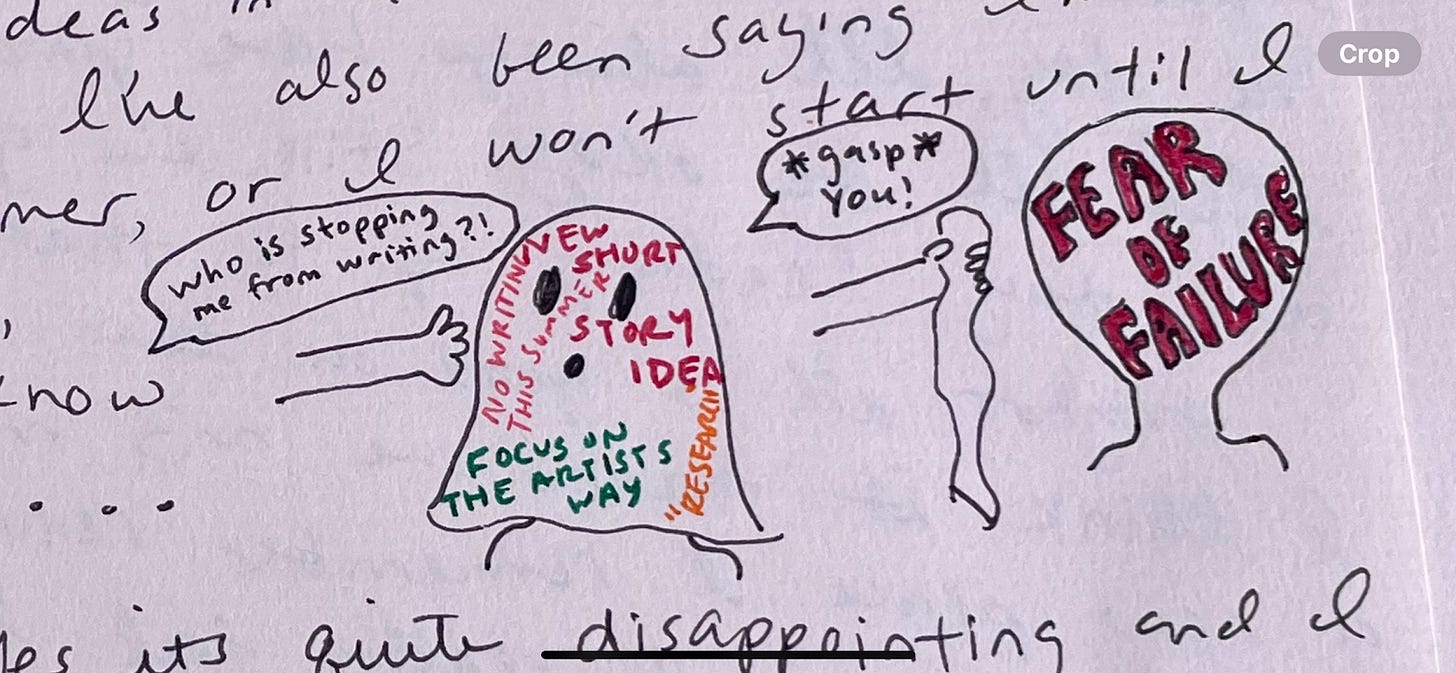 deas
like also been saying
Crop
ner, or I won't start until I
who is stopping
me from writing?!
*gasp*
You!
NO WRITING
THIS SUMMER
NEW
SHORT
STORY
IDEA
FOCUS ON
THE ARTISTS
WAY
"RESEARCH"
FEAR
OF
FAILURE
know
...
its quite disappointing and I